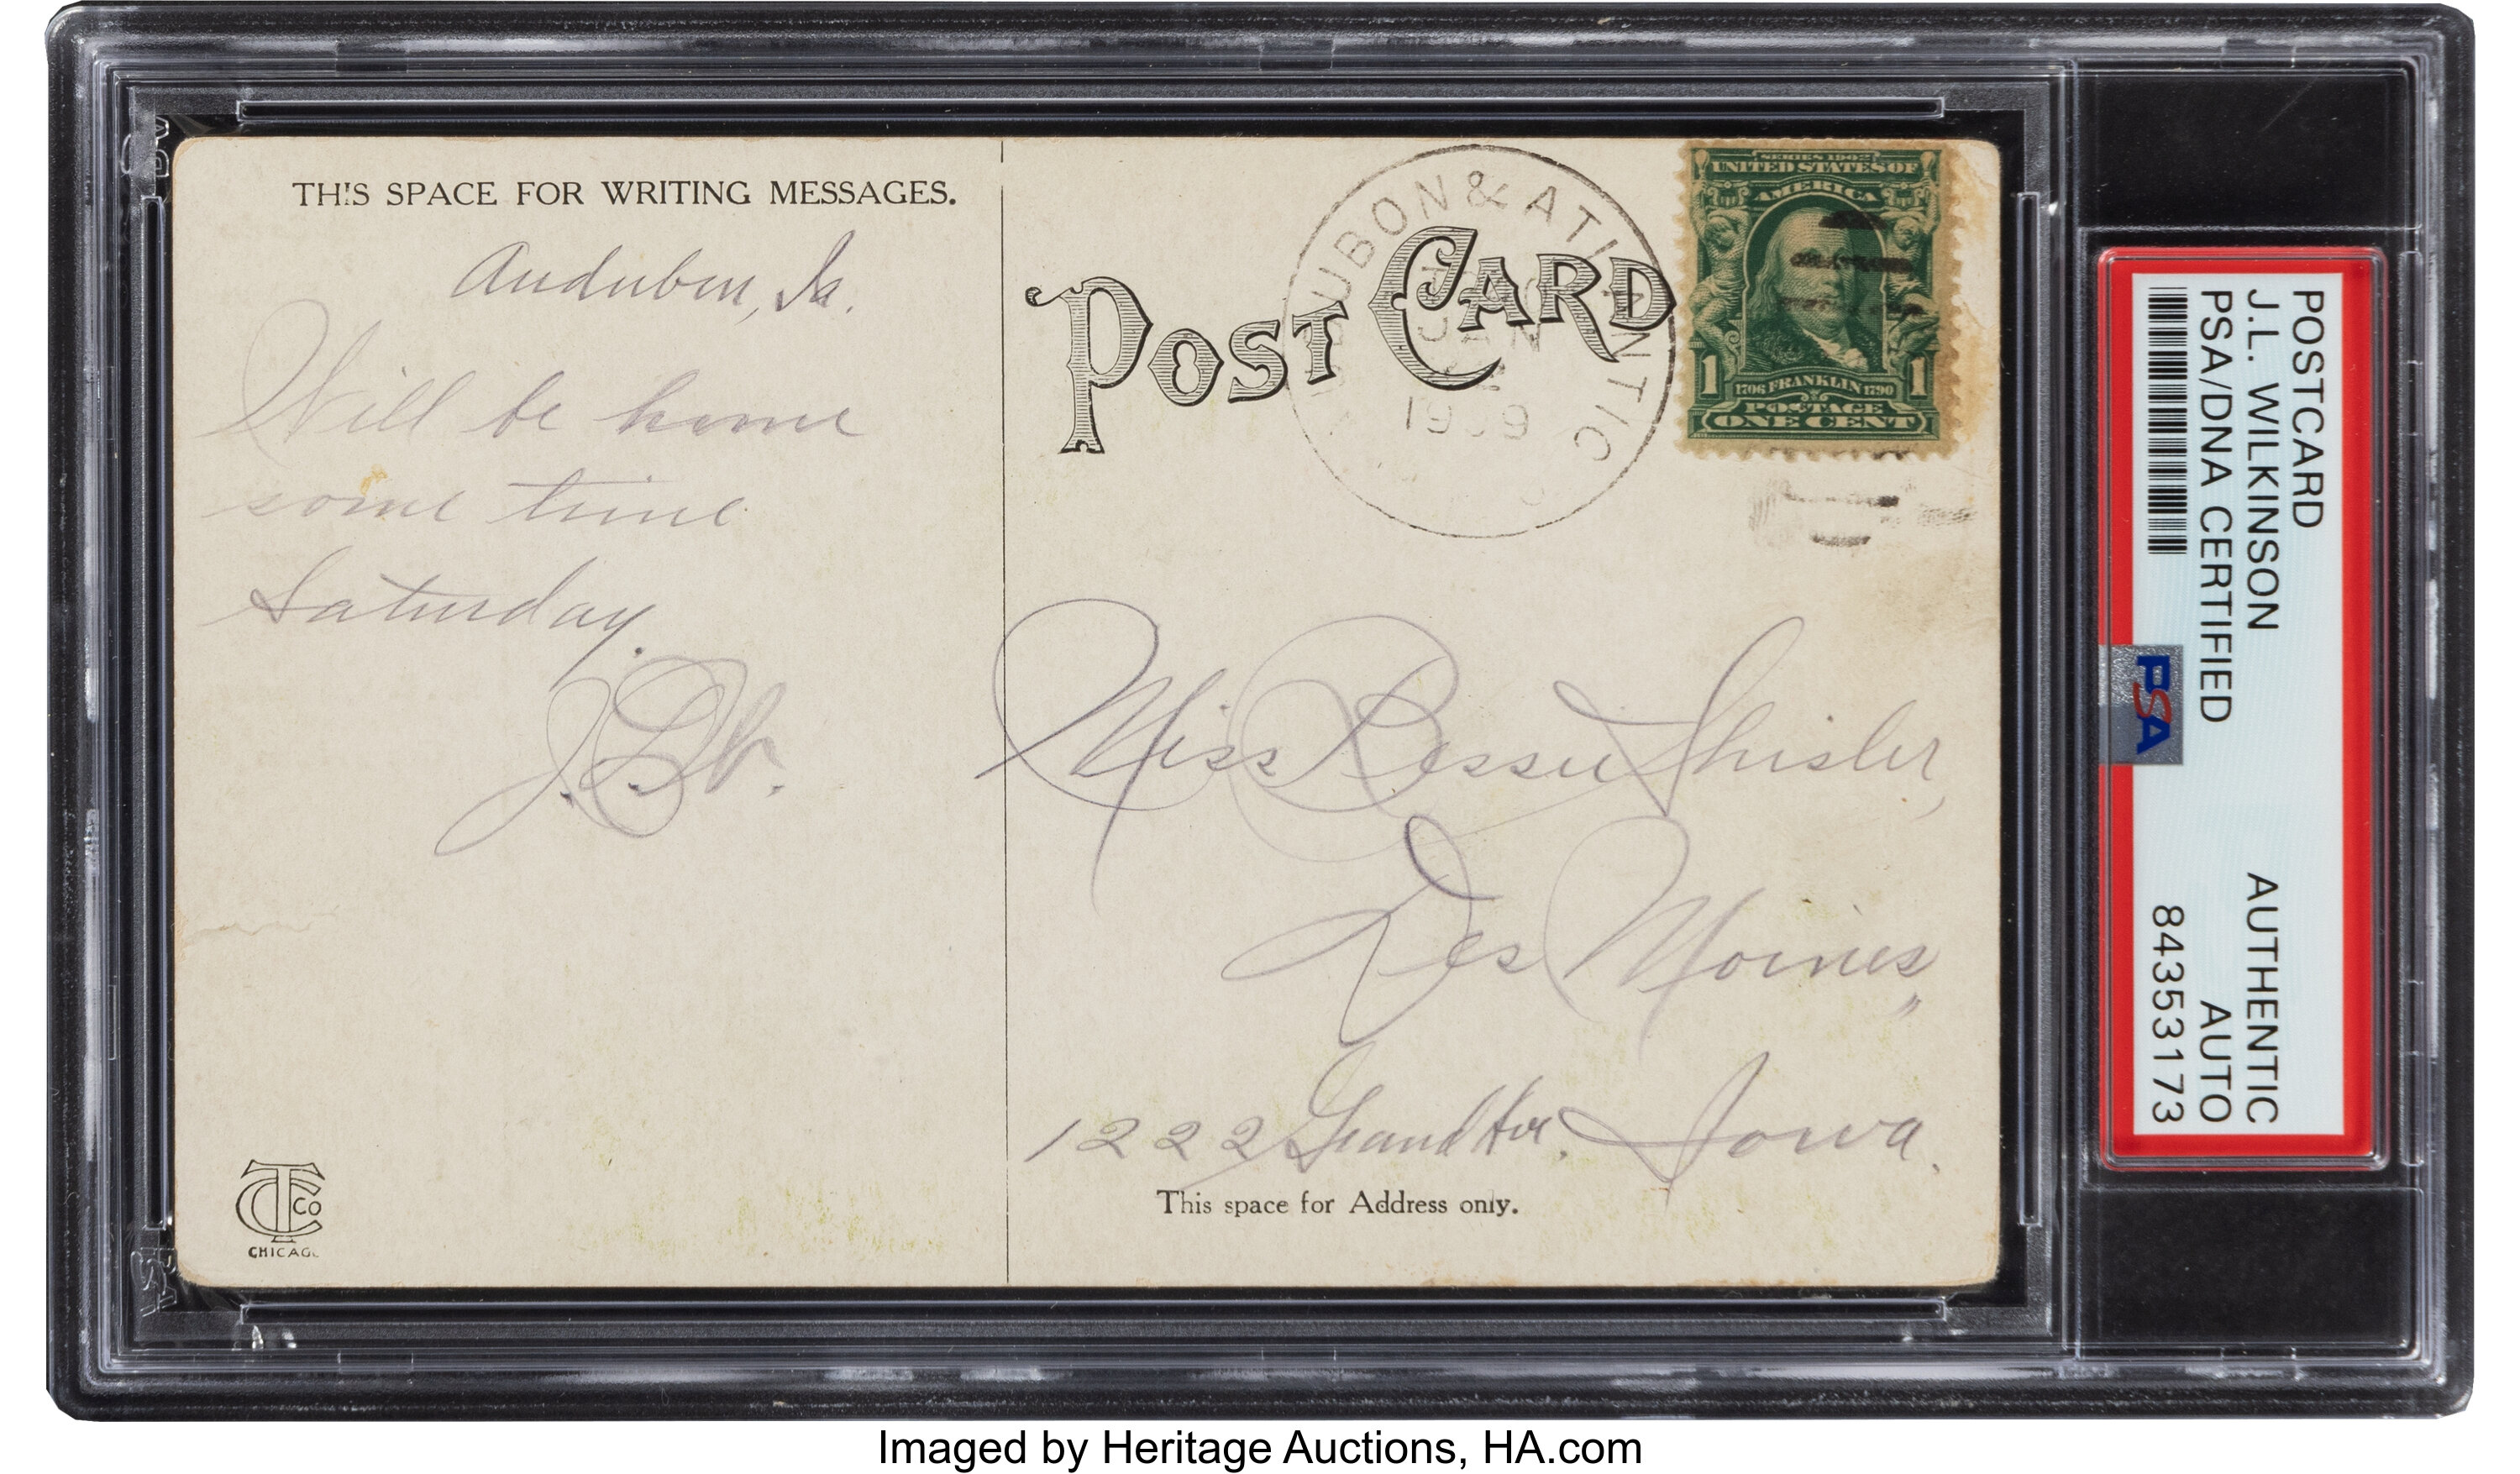 THIS SPACE FOR WRITING MESSAGES.
Audubon, Ia.
Will be home
some time
Saturday.
J.L.W.
CT CO
CHICAGO
POST CARD
AUDUBON & ATLANTIC
JAN
2
1909
SERIES 1902
UNITED STATES OF
AMERICA
1 1706 FRANKLIN 1790 1
POSTAGE
ONE CENT
Miss Bessie Shisler,
Des Moines,
1222 Grand Ave. Iowa.
This space for Address only.
POSTCARD
J.L. WILKINSON AUTHENTIC
PSA/DNA CERTIFIED AUTO
84353173
PSA
Imaged by Heritage Auctions, HA.com